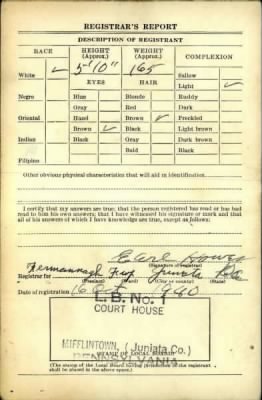 REGISTRAR'S REPORT
DESCRIPTION OF REGISTRANT
RACE HEIGHT (Approx.) WEIGHT (Approx.) COMPLEXION
White ✓ 5'10" 165 Sallow
EYES HAIR Light ✓
Negro Blue Blonde Ruddy
Gray Red Dark
Oriental Hazel Brown ✓ Freckled
Brown ✓ Black Light brown
Indian Black Gray Dark brown
Bald Black
Filipino
Other obvious physical characteristics that will aid in identification
I certify that my answers are true; that the person registered has read or has had
read to him his own answers; that I have witnessed his signature or mark and that
all of his answers of which I have knowledge are true, except as follows:
Earl
(Signature of registrar)
Registrar for Fermanagh Twp Juniata Pa
(Precinct) (Ward) (City or county) (State)
Date of registration 16 Oct 1940
L.B. No. 1
COURT HOUSE
MIFFLINTOWN, (Juniata Co.)
PENNSYLVANIA
(STAMP OF LOCAL BOARD)
(The stamp of the Local Board having jurisdiction of the registrant
shall be placed in the above space.)